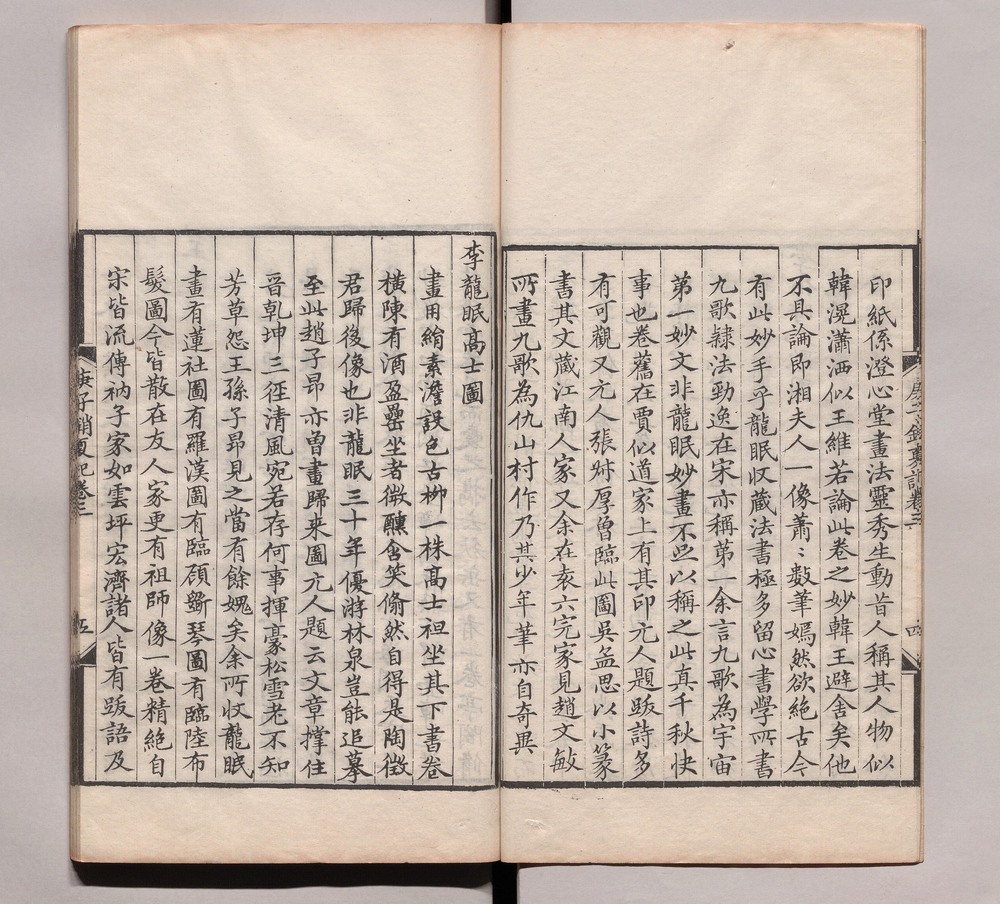 印紙係澄心堂畫法靈秀生動昔人稱其人物似
韓滉瀟洒似王維若論此卷之妙韓王避舍矣他
不具論即湘夫人一像蕭〻數筆嫣然欲絕古今
有此妙手乎龍眠收蔵法書極多留心書學所書
九歌隷法勁逸在宋亦稱第一余言九歌為宇宙
第一妙文非龍眠妙畫不足以稱之此真千秋快
事也卷舊在賈似道家上有其印元人題跋詩多
有可觀又元人張叔厚曾臨此圖吳孟思以小篆
書其文蔵江南人家又余在袁六完家見趙文敏
所畫九歌為仇山村作乃其少年筆亦自奇異
李龍眠高士圖
畫用絹素澹設色古柳一株高士袒坐其下書卷
橫陳有酒盈罍坐者微醺含笑翛然自得是陶徵
君歸後像也非龍眠三十年優游林泉豈能追摹
至此趙子昂亦曽畫歸来圖元人題云文章撑住
晉乾坤三徑清風宛若存何事揮豪松雪老不知
芳草怨王孫子昂見之當有餘媿矣余所收龍眠
畫有蓮社圖有羅漢圖有臨顔斵琴圖有臨陸布
髮圖今皆散在友人家更有祖師像一卷精絕自
宋皆流傳衲子家如雲坪宏濟諸人皆有跋語及
庚子銷夏記卷三
五